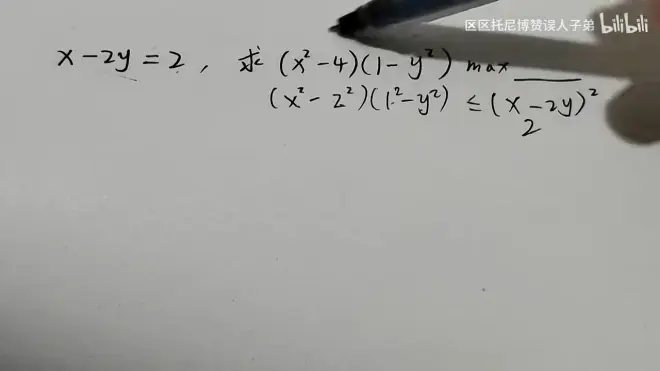 区区托尼博赞误人子弟 bilibili
x-2y=2, 求 (x²-4)(1-y²) max ____
(x²-2²)(1²-y²) ≤ (x-2y)²
2